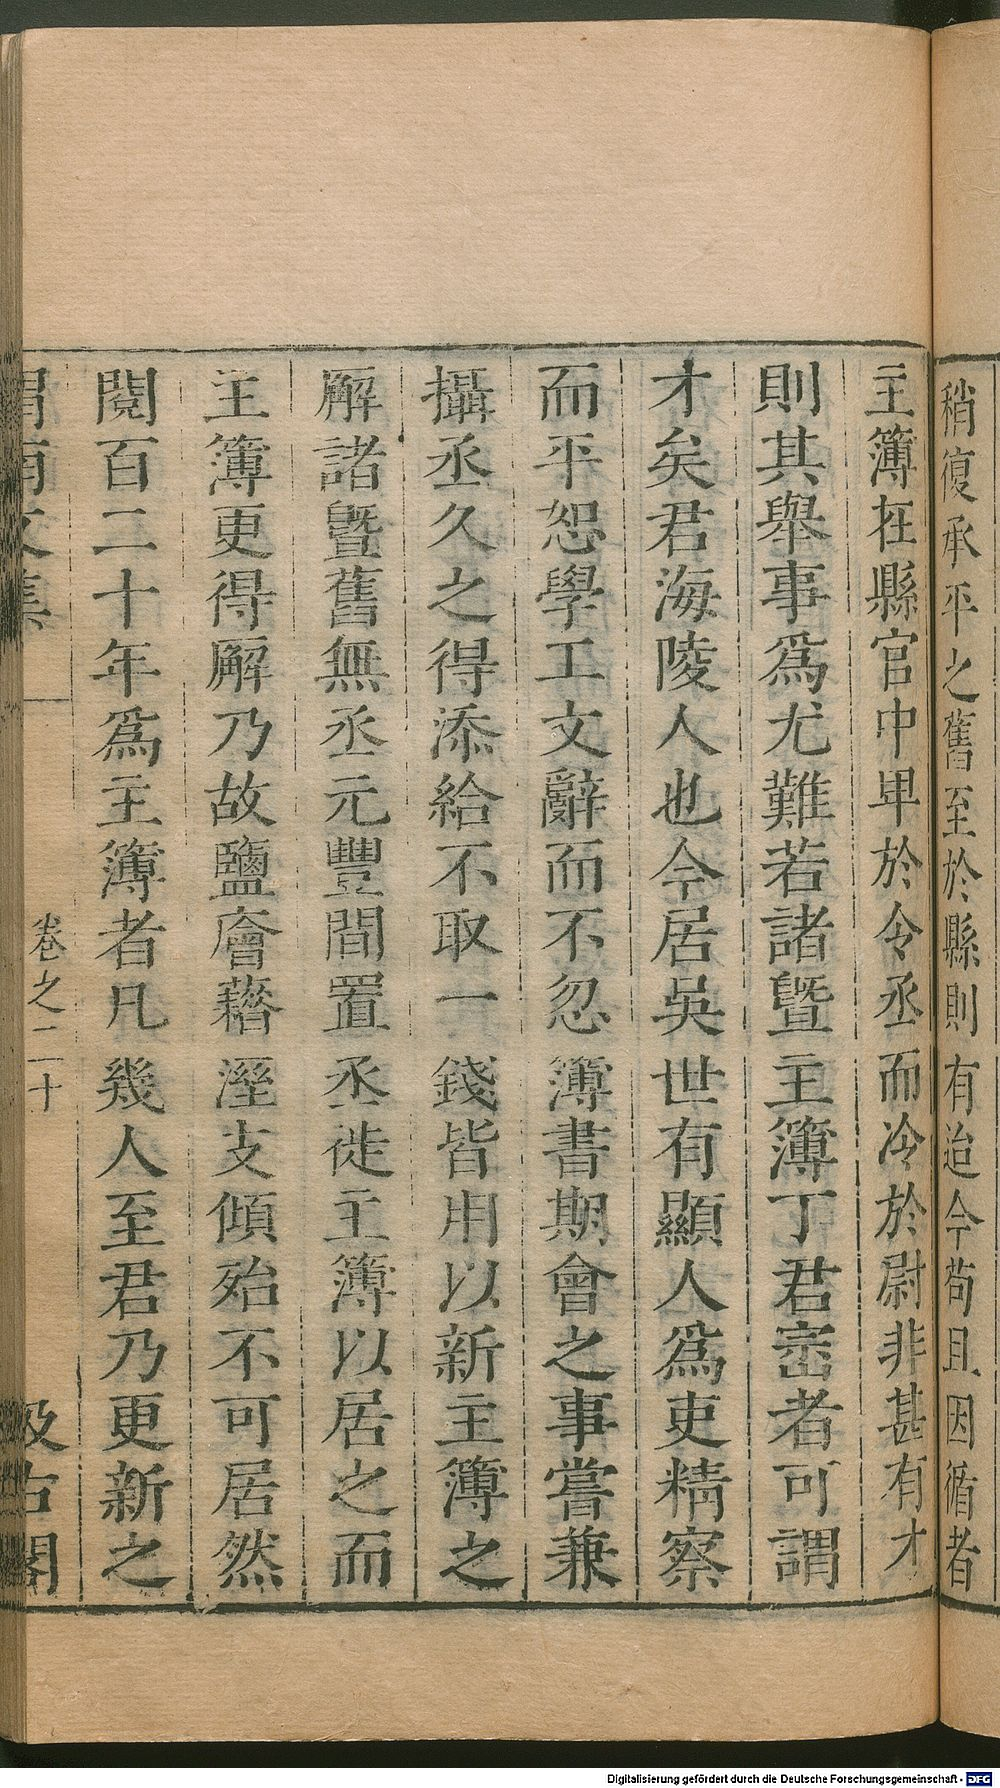 稍復承平之舊至於縣則有迨今苟且因循者
主簿在縣官中卑於令丞而冷於尉非甚有才
則其舉事爲尤難若諸暨主簿丁君密者可謂
才矣君海陵人也今居吳世有顯人爲吏精察
而平恕學工文辭而不忍簿書期會之事嘗兼
攝丞久之得添給不取一錢皆用以新主簿之
廨諸暨舊無丞元豐間置丞徙主簿以居之而
主簿更得廨乃故鹽廥藉溼支傾殆不可居然
閱百二十年爲主簿者凡幾人至君乃更新之
渭南文集
卷之二十
汲古閣
Digitalisierung gefördert durch die Deutsche Forschungsgemeinschaft - DFG